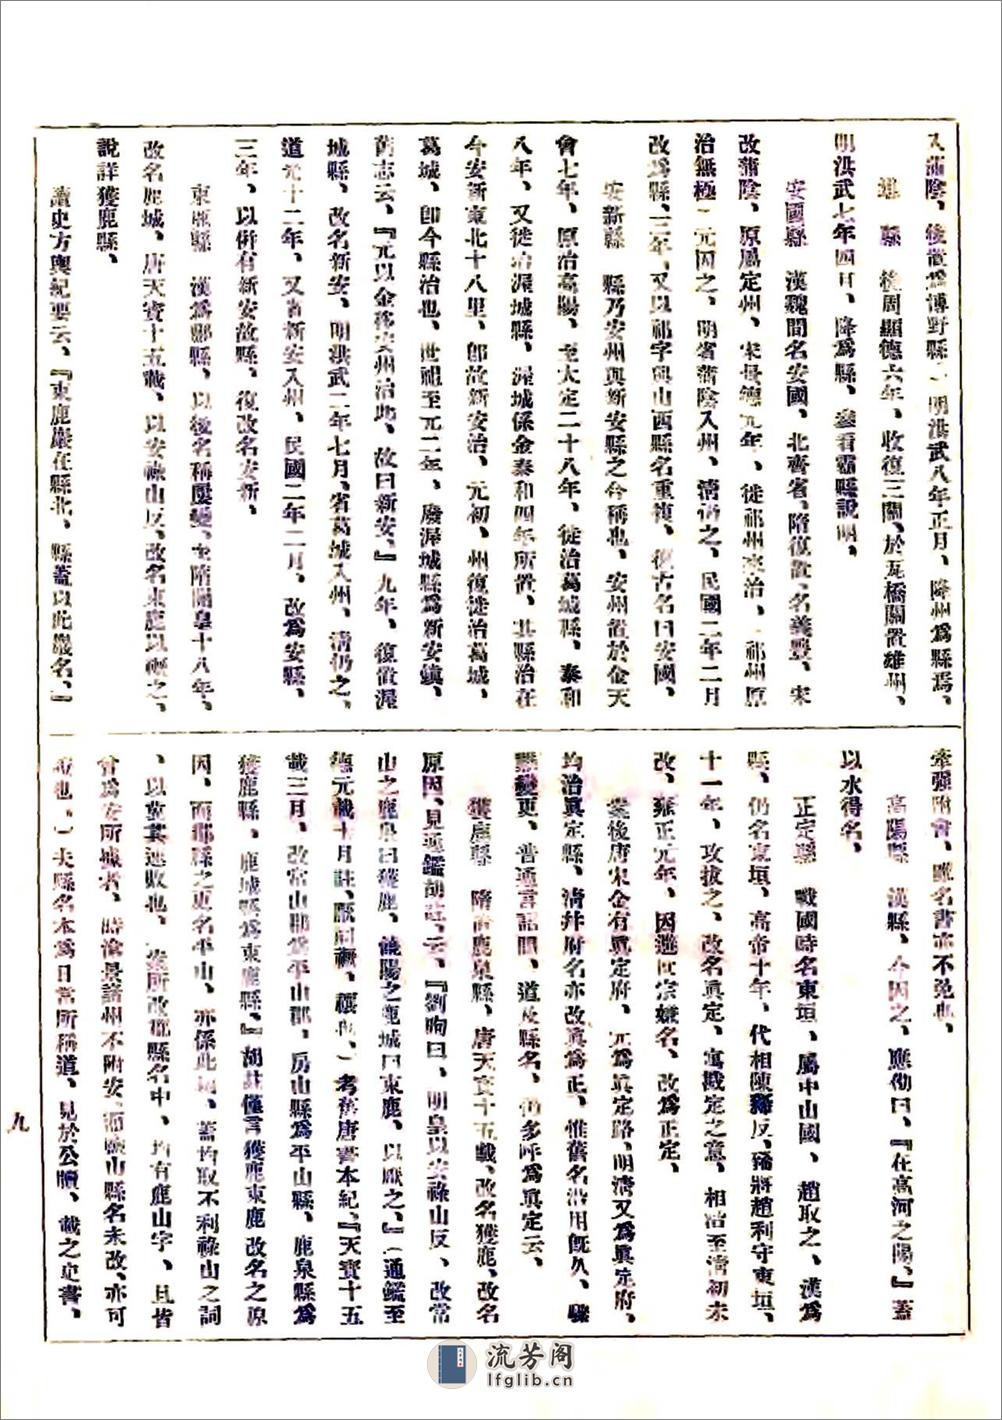 入蒲陰、後置為博野縣、）明洪武八年正月、降州為縣焉、
縣　後周顯德六年、收復三關、於瓦橋關置雄州、
明洪武七年四月、降為縣、參看霸縣說明、
安國縣　漢魏間名安國、北齊省、隋復置、名義豐、宋
改蒲陰、原屬定州、宋景德元年、徙祁州來治、（祁州原
治無極）元因之、明省蒲陰入州、清仍之、民國二年二月
改為縣、三年、又以祁字與山西縣名重複、復古名曰安國、
安新縣　縣乃安州與新安縣之今稱也、安州置於金天
會七年、原治高陽、至大定二十八年、徙治葛城縣、泰和
八年、又徙治渥城縣、渥城係金泰和四年所置、其縣治在
今安新東北十八里、即故新安治、元初、州復徙治葛城、
葛城、即今縣治也、世祖至元二年、廢渥城縣為新安鎮、
舊志云、『元以金徙安州治此、故曰新安、』九年、復置渥
城縣、改名新安、明洪武二年七月、省葛城入州、清仍之、
道光十二年、又省新安入州、民國二年二月、改為安縣、
三年、以併有新安故縣、復改名安新、
東鹿縣　漢為鄡縣、以後名稱屢變、至隋開皇十八年、
改名鹿城、唐天寶十五載、以安祿山反、改名束鹿以厭之、
說詳獲鹿縣、
讀史方輿紀要云、『束鹿巖在縣北、縣蓋以此巖名、』
牽强附會、雖名書亦不免也、
高陽縣　漢縣、今因之、應劭曰、『在高河之陽、』蓋
以水得名、
正定縣　戰國時名東垣、屬中山國、趙取之、漢為
縣、仍名東垣、高帝十年、代相陳豨反、豨將趙利守東垣、
十一年、攻拔之、改名眞定、寓戡定之意、相沿至清初未
改、雍正元年、因避世宗嫌名、改為正定、
案後唐宋金有眞定府、元為眞定路、明清又為眞定府、
均治眞定縣、清并府名亦改眞為正、惟舊名沿用旣久、驟
難變更、普通言語間、道及縣名、仍多呼為眞定云、
獲鹿縣　隋清鹿泉縣、唐天寶十五載、改名獲鹿、改名
原因、見通鑑胡註、云、『劉昫曰、明皇以安祿山反、改常
山之鹿泉曰獲鹿、饒陽之鹿城曰束鹿、以厭之、』（通鑑至
德元載十月註、厭同禳、禳也、）考舊唐書本紀、『天寶十五
載三月、改常山郡為平山郡、房山縣為平山縣、鹿泉縣為
獲鹿縣、鹿城縣為束鹿縣、』胡註僅言獲鹿束鹿改名之原
因、而郡縣之更名平山、亦係此故、蓋均取不利祿山之詞
、以冀其速敗也、案所改郡縣名中、均有鹿山字、且皆
曾為安所據者、時滄景諸州不附安、而鹽山縣名未改、亦可
證也、）夫縣名本為日常所稱道、見於公牘、載之史書、
九
流芳阁
lfglib.cn